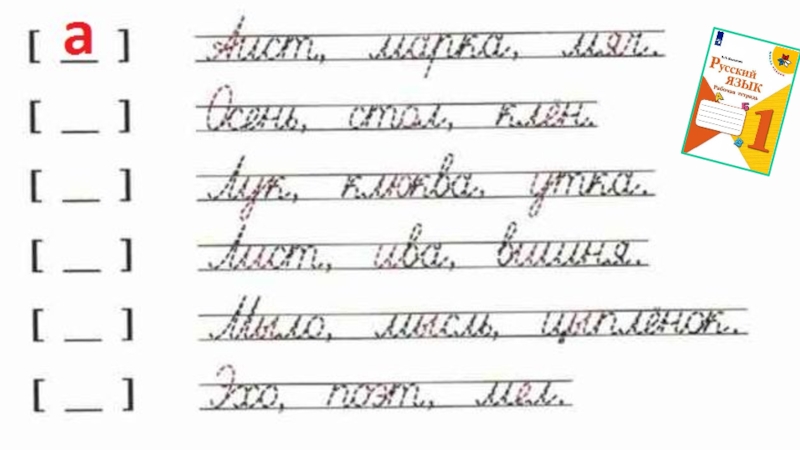 [ а ] Аист, марка, мяч.
[ __ ] Осень, стол, клён.
[ __ ] Лук, клюква, утка.
[ __ ] Лист, ива, вишня.
[ __ ] Мыло, мысль, цыплёнок.
[ __ ] Эхо, поэт, мел.
Русский
ЯЗЫК
Рабочая тетрадь
1